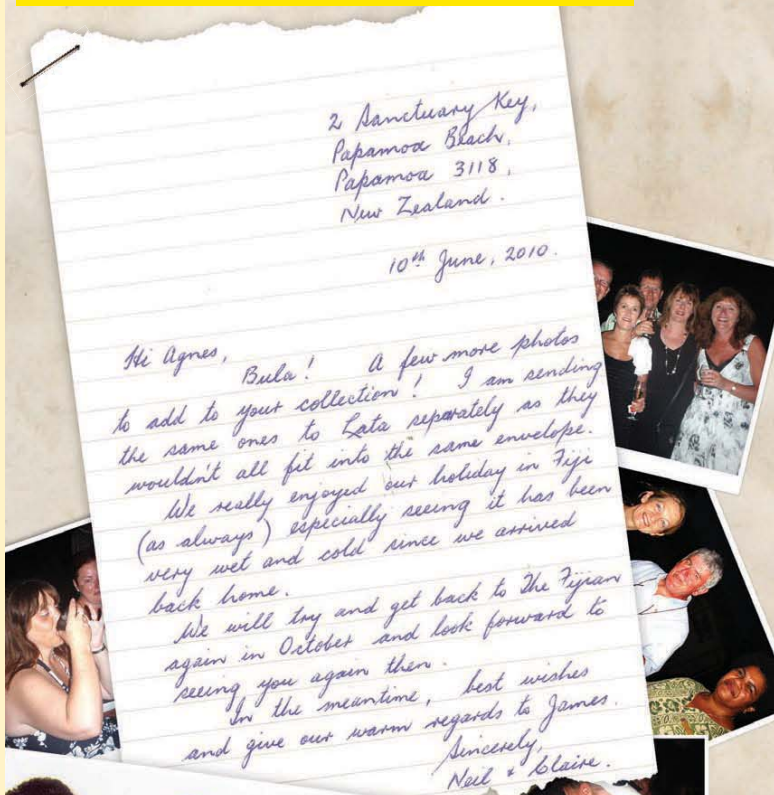 2 Sanctuary Key,
Papamoa Beach,
Papamoa 3118,
New Zealand.
10th June, 2010.
Hi Agnes,
Bula! A few more photos
to add to your collection! I am sending
the same ones to Lata separately as they
wouldn't all fit into the same envelope.
We really enjoyed our holiday in Fiji
(as always) especially seeing it has been
very wet and cold since we arrived
back home.
We will try and get back to The Fijian
again in October and look forward to
seeing you again then.
In the meantime, best wishes
and give our warm regards to James.
Sincerely,
Neil & Claire.